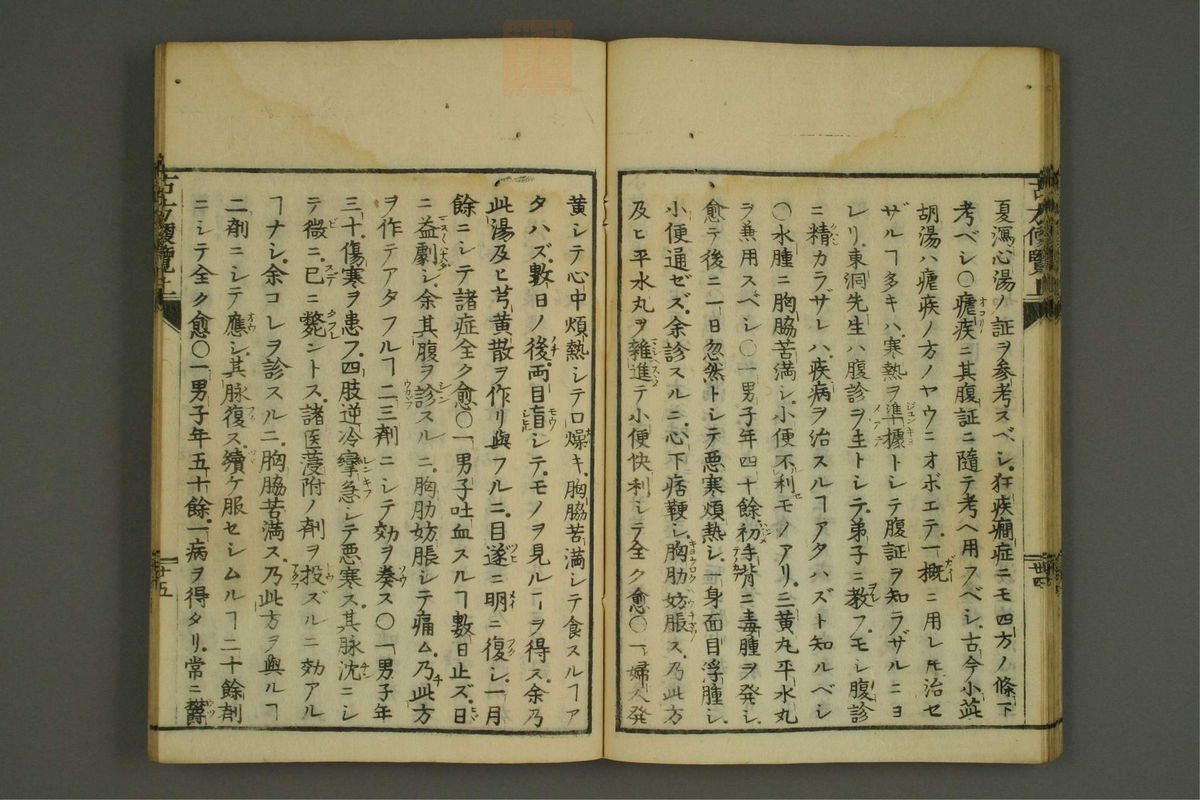 夏瀉心湯ノ証ヲ参考スベシ狂疾癇症ニモ四方ノ條下
考ベシ〇瘧疾ニ其腹証ニ隨テ考ヘ用フベシ古今小茈
胡湯ハ瘧疾ノ方ノヤウニオボエテ一概ニ用レ𪜈治セ
ザルヿ多キハ寒熱ヲ準據トシテ腹証ヲ知ラザルニヨ
レリ東洞先生ハ腹診ヲ主トシテ弟子ニ教フモシ腹診
ニ精カラザレハ疾病ヲ治スルヿアタハズト知ルベシ
〇水腫ニ胸脇苦満シ小便不利モノアリ三黄丸平水丸
ヲ兼用スベシ〇一男子年四十餘初手背ニ毒腫ヲ発シ
愈テ後ニ一日忽然トシテ悪寒煩熱シ一身面目浮腫シ
小便通ゼズ余診スルニ心下痞鞕シ胸肋妨脹ス乃此方
及ヒ平水丸ヲ雜進テ小便快利シテ全ク愈〇一婦人発
黄シテ心中煩熱シテ口燥キ胸脇苦満シテ食スルヿア
タハズ數日ノ後両目盲シテモノヲ見ルヿヲ得ス余乃
此湯及ヒ芎黄散ヲ作リ與フルニ目遂ニ明ニ復シ一月
餘ニシテ諸症全ク愈〇一男子吐血スルヿ數日止ズ日
ニ益劇シ余其腹ヲ診スルニ胸肋妨脹シテ痛ム乃此方
ヲ作テアタフルヿ二三劑ニシテ効ヲ奏ス〇一男子年
三十傷寒ヲ患フ四肢逆冷攣急シテ悪寒ス其脉沈ニシ
テ微ニ已ニ斃ントス諸医蓡附ノ劑ヲ投ズルニ効アル
ヿナシ余コレヲ診スルニ胸脇苦満ス乃此方ヲ與ルヿ
二劑ニシテ應シ其脉復ス續ケ服セシムルヿ二十餘劑
ニシテ全ク愈〇一男子年五十餘一病ヲ得タリ常ニ欝
古方便覽上
廿五